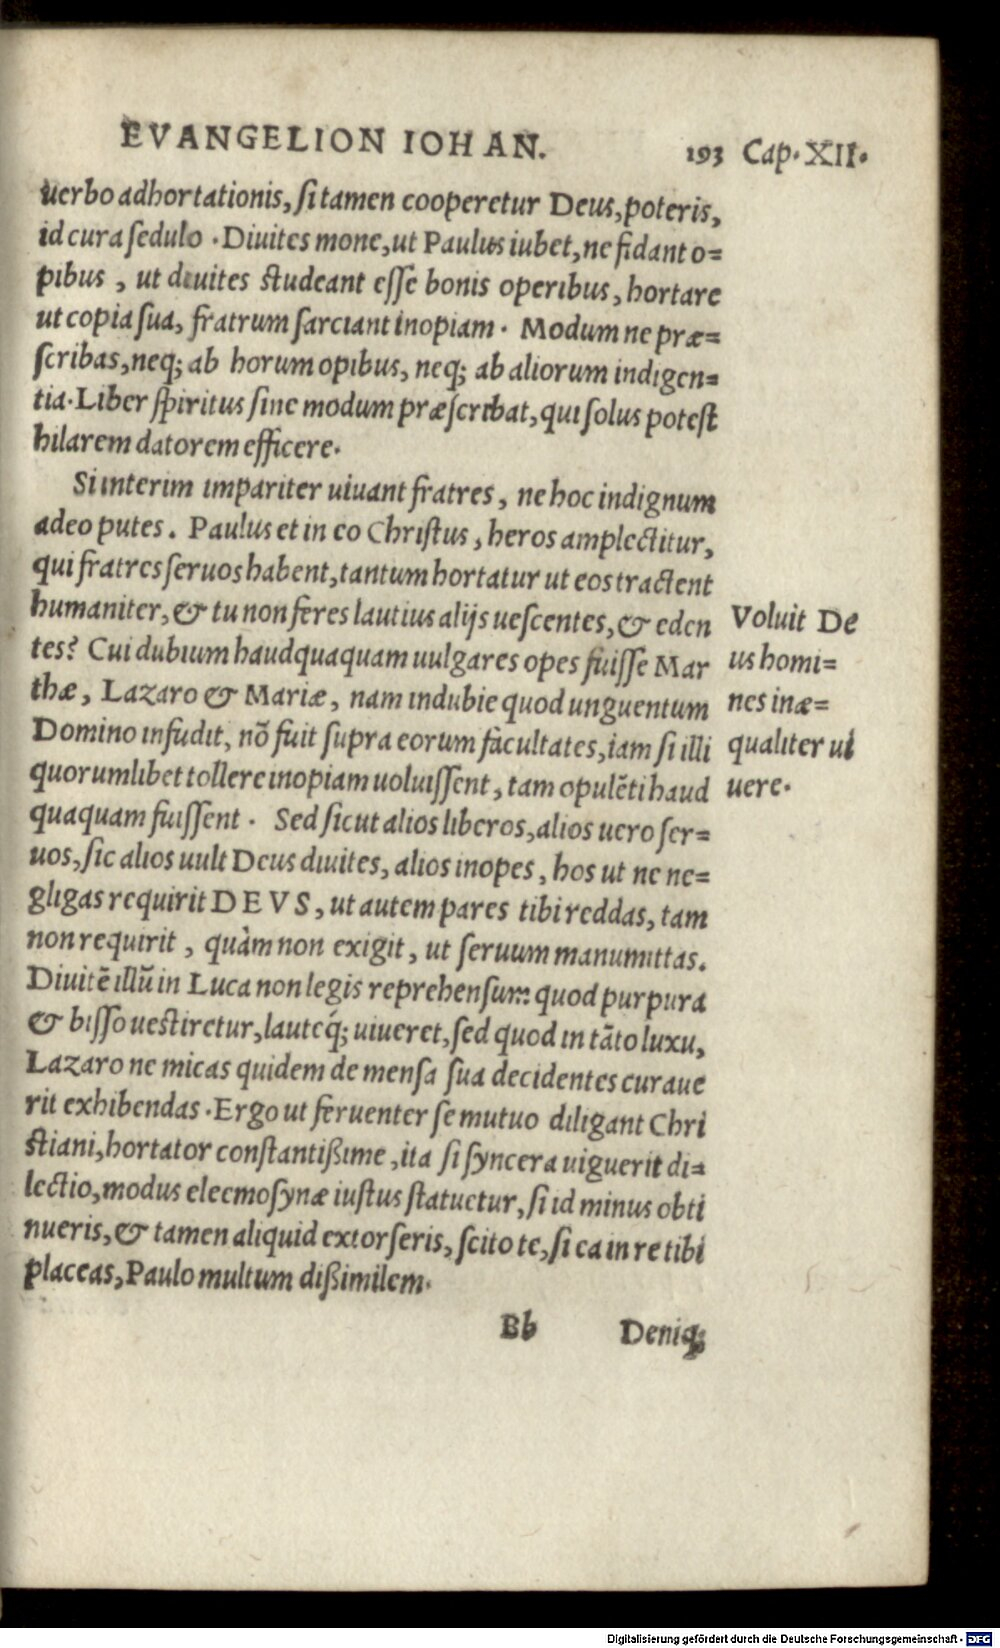 EVANGELION IOHAN. 193 Cap. XII.
uerbo adhortationis, si tamen cooperetur Deus, poteris,
id cura sedulo. Diuites mone, ut Paulus iubet, ne fidant o=
pibus, ut diuites studeant esse bonis operibus, hortare
ut copia sua, fratrum sarciant inopiam. Modum ne præ=
scribas, neq; ab horum opibus, neq; ab aliorum indigen=
tia. Liber spiritus sine modum præscribat, qui solus potest
hilarem datorem efficere.
Si interim impariter uiuant fratres, ne hoc indignum
adeo putes. Paulus et in eo Christus, heros amplectitur,
qui fratres seruos habent, tantum hortatur ut eos tractent
humaniter, & tu non feres lautius alijs uescentes, & eden
tes? Cui dubium haudquaquam uulgares opes fuisse Mar
thæ, Lazaro & Mariæ, nam indubie quod unguentum
Domino infudit, nõ fuit supra eorum facultates, iam si illi
quorumlibet tollere inopiam uoluissent, tam opulẽti haud
quaquam fuissent. Sed sicut alios liberos, alios uero ser=
uos, sic alios uult Deus diuites, alios inopes, hos ut ne ne=
gligas requirit DEVS, ut autem pares tibi reddas, tam
non requirit, quàm non exigit, ut seruum manumittas.
Diuitẽ illũ in Luca non legis reprehensum quod purpura
& bisso uestiretur, lauteq́; uiueret, sed quod in tãto luxu,
Lazaro ne micas quidem de mensa sua decidentes curaue
rit exhibendas. Ergo ut feruenter se mutuo diligant Chri
stiani, hortator constantißime, ita si syncera uiguerit di=
lectio, modus eleemosynæ iustus statuetur, si id minus obti
nueris, & tamen aliquid extorseris, scito te, si ea in re tibi
placeas, Paulo multum dißimilem.
Bb Deniq;
Voluit De
us homi=
nes inæ=
qualiter ui
uere.
Digitalisierung gefördert durch die Deutsche Forschungsgemeinschaft - DFG